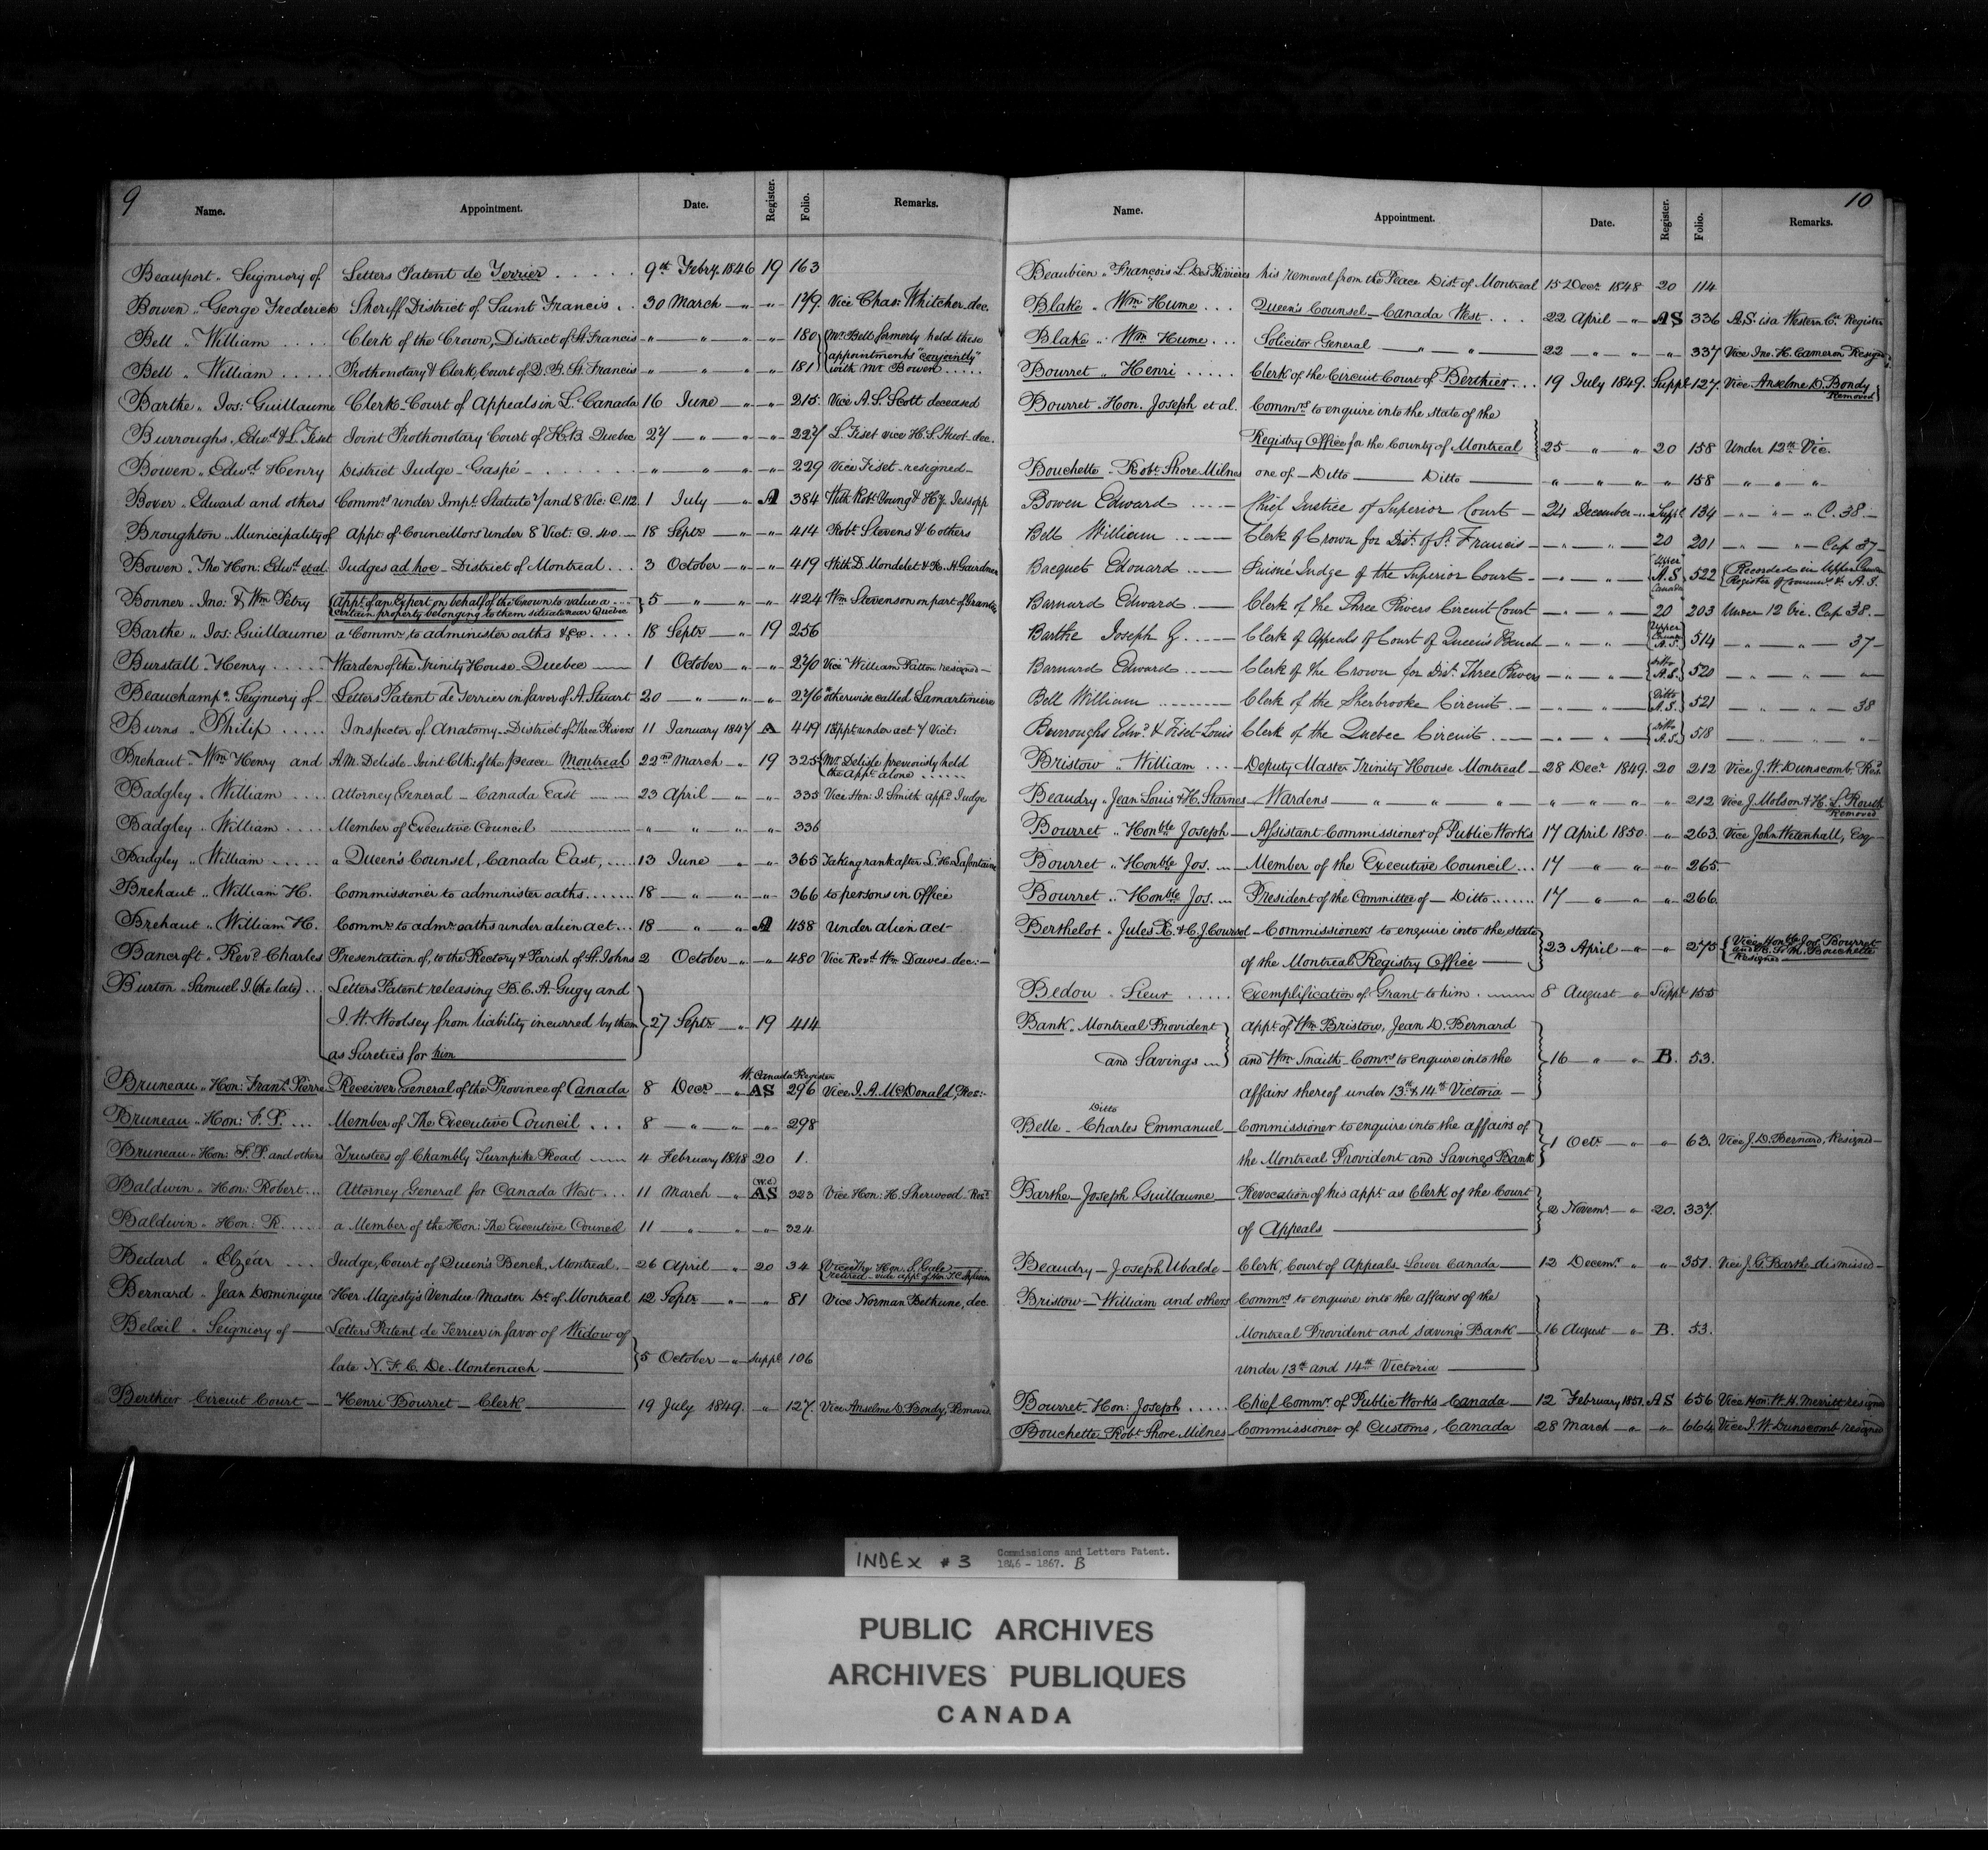 9
Name. Appointment. Date. Register. Folio. Remarks.
Beauport „ Seigniory of Letters Patent de Terrier . . . . . 9th Febry. 1846 19 163
Bowen „ George Frederick Sheriff District of Saint Francis . . 30 March — „ — „ — 179. Vice Chas: Whitcher dec.
Bell „ William . . . . Clerk of the Crown, District of St. Francis — „ — „ — „ — „ — 180 Mr. Bell formerly held these
appointments "conjointly"
Bell „ William . . . . . Prothonotary & Clerk, Court of Q. B. St. Francis — „ — „ — „ — „ — 181 with Mr. Bowen . . . . .
Barthe „ Jos: Guillaume Clerk - Court of Appeals in L. Canada 16 June — „ — „ — 215. Vice A. S. Scott deceased
Burroughs „ Edwd. & L. Fiset Joint Prothonotary Court of K.B. Quebec 27 — „ — „ — „ — 227 L. Fiset vice H. S. Huot. dec.
Bowen „ Edwd. Henry District Judge - Gaspé - . . . . . — „ — „ — „ — „ — 229 Vice Fiset - resigned —
Boxer „ Edward and others Commrs. under Impl. Statute 7 and 8 Vic: C. 112. 1 July — „ — A 384 With Robt. Young & Hy. Jessopp
Broughton „ Municipality of Appt. of Councillors under 8 Vict: C. 40 — 18 Septr — „ — „ — 414 Robt. Stevens & 6 others
Bowen „ The Hon: Edwd. et al. Judges ad hoc - District of Montreal . . . 3 October — „ — „ — 419 With D. Mondelet & R. H. Gairdner
Bonner „ Jno: & Wm. Petry Appt. of an Expert on behalf of the Crown to value a . . .
certain property belonging to them situate near Quebec 5 — „ — „ — „ — 424 Wm. Stevenson on part of Grantees
Barthe „ Jos: Guillaume a Commr. to administer oaths &ca . . . . 18 Septr — „ — 19 256
Burstall „ Henry . . . . Warden of the Trinity House - Quebec — 1 October — „ — „ — 270 Vice William Patton resigned —
Beauchamp „ Seigniory of — Letters Patent de Terrier in favor of A. Stuart 20 — „ — „ — „ — 276 otherwise called Lamartiniere
Burns „ Philip . . . . . Inspector of Anatomy - District of Three Rivers 11 January 1847 A 449 Appt under act 7 Vict:
Brehaut „ Wm. Henry and A. M. Delisle - Joint Clk: of the peace Montreal 22nd March — „ — 19 325 Mr. Delisle previously held
the Appt. alone . . . . . .
Badgley „ William . . . . Attorney General — Canada East — 23 April — „ — „ — 335 Vice Hon: J. Smith appd. Judge
Badgley „ William . . . . Member of Executive Council — „ — „ — „ — „ — 336
Badgley „ William . . . . . a Queen's Counsel, Canada East, . . . . 13 June „ — „ — 365 Taking rank after L. H. Lafontaine
Brehaut „ William H. Commissioner to administer oaths . . . . . . 18 — „ — „ — „ — 366 to persons in Office
Brehaut „ William H. Commr. to admr. oaths under alien act . . . 18 — „ — „ — A 458 Under alien act -
Bancroft „ Revd. Charles Presentation of, to the Rectory & Parish of St. Johns 2 October — „ — „ — 480 Vice Revd. Wm. Dawes - dec: —
Burton „ Samuel I. (the late) . . . Letters Patent releasing B. C. A. Gugy and
J. W. Woolsey from liability incurred by them 27 Septr — „ — 19 414
as Sureties for him
W. Canada Register
Bruneau „ Hon: Frans. Pierre Receiver General of the Province of Canada 8 Decr. — „ — AS 296 Vice J. A. McDonald, Res: -
Bruneau „ Hon: F. P. . . . Member of The Executive Council . . . 8 — „ — „ — „ — 298
Bruneau „ Hon: F. P. and others Trustees of Chambly Turnpike Road — 4 February 1848 20 1.
Baldwin „ Hon: Robert . . . Attorney General for Canada West . . . 11 March — „ (W.C.) AS 323 Vice Hon: H. Sherwood Resd.
Baldwin „ Hon: R. . . . . a Member of the Hon: The Executive Council 11 — „ — „ — „ — 324
Bedard „ Elzéar . . . . Judge, Court of Queen's Bench, Montreal. — 26 April — „ 20 34 Hon. S. Gale —
retired - vide appt. of Hon. T. C. Aylwin
Bernard „ Jean Dominique Her Majesty's Vendue Master Dt. of Montreal 12 Septr — „ — „ — 81 Vice Norman Bethune, dec
Belœil „ Seigniory of — Letters Patent de Terrier in favor of Widow of
late N. F. C. De Montenach 5 October — „ — Suppt 106
Berthier Circuit Court — Henri Bourret — Clerk 19 July 1849. — „ — 127. Vice Anselme D. Bondy, Removed.
10
Name. Appointment. Date. Register. Folio. Remarks.
Beaubien „ François L. Des Rivières his removal from the Peace Dist. of Montreal 15 Decr. 1848 20 114
Blake „ Wm. Hume . . . Queen's Counsel — Canada West . . . 22 April — „ — AS 336 A.S. is a Western Ca. Register
Blake „ Wm. Hume . . . Solicitor General — „ — „ — 22 — „ — „ — „ — 337 Vice Jno. H. Cameron Resigned
Bourret „ Henri . . . . . Clerk of the Circuit Court of Berthier . . . 19 July 1849. Suppt 127. Vice Anselme D. Bondy
Removed
Bourret „ Hon. Joseph et al. Commrs. to enquire into the state of the
Registry Office for the County of Montreal 25 — „ — „ 20 158 Under 12th Vic.
Bouchette „ Robt. Shore Milnes one of — Ditto — Ditto — „ — „ — „ „ 158 — „ — „ — „ —
Bowen Edward . . . — Chief Justice of Superior Court — 24 December — „ Suppt. 134 — „ — „ — „ C. 38. —
Bell William . . . — Clerk of Crown for Dist. of St. Francis — — „ — „ — 20 201 — „ — „ — Cap 37 —
Bacquet Edouard . . . — Puisné Judge of the Superior Court — — „ — „ — Upper A.S. Canada 522 Recorded in Upper Canada
Register of Commns. &c A.S.
Barnard Edward . . . — Clerk of the Three Rivers Circuit Court — „ — „ — 20 203 Under 12 Vic. Cap 38. —
Barthe Joseph G. . . . — Clerk of Appeals of Court of Queen's Bench — „ — „ — Upper Canada A.S. 514 — „ — „ — 37 —
Barnard Edward . . . — Clerk of the Crown for Dist. Three Rivers — „ — „ — ditto A.S. 520 — „ — „ — „ —
Bell William . . . . . . . Clerk of the Sherbrooke Circuit . — — „ — „ — Ditto A.S. 521 — „ — „ — 38
Burroughs Edwd. & Fiset Louis Clerk of the Quebec Circuit . . — — „ — „ — ditto A.S. 518 — „ — „ — „
Bristow „ William . . . — Deputy Master Trinity House Montreal — 28 Decr. 1849. 20 212 Vice J. W. Dunscomb, Resd.
Beaudry „ Jean Louis & H. Starnes — Wardens — „ — „ — „ „ — „ — „ — „ 212 Vice J. Molson & H. L. Routh
Removed
Bourret „ Honble Joseph — Assistant Commissioner of Public Works 17 April 1850. — „ — 263. Vice John Wetenhall, Esq —
Bourret „ Honble Jos. — Member of the Executive Council . . . 17 „ — „ — „ — 265
Bourret „ Honble Jos. . . . President of the Committee of — Ditto . . . . . . 17 — „ — „ „ 266.
Berthelot „ Jules R. & C. J. Coursol — Commissioners to enquire into the state
of the Montreal Registry Office 23 April — „ — „ — 275 Vice Honble Jos. Bourret
and R. S. M. Bouchette
Resigned
Bedou „ Sieur . . . . . Exemplification of Grant to him . 8 August — „ Suppt 155
Bank „ Montreal Provident Appt. of Wm. Bristow, Jean D. Bernard
and Savings and Wm. Snaith - Commrs. to enquire into the 16 — „ — „ B. 53.
affairs thereof under 13th & 14th Victoria —
Ditto
Belle — Charles Emmanuel — Commissioner to enquire into the affairs of
the Montreal Provident and Savings Bank 1 Octr. — „ — „ — 63. Vice J. D. Bernard, Resigned —
Barthe — Joseph Guillaume — Revocation of his appt. as Clerk of the Court
of Appeals 2 Novemr. — „ 20. 337.
Beaudry — Joseph Ubalde — Clerk, Court of Appeals - Lower Canada 12 Decemr. — „ — „ — 351. Vice J. G. Barthe dismissed —
Bristow — William and others Commrs. to enquire into the affairs of the
Montreal Provident and Savings Bank — 16 August — „ B. 53.
under 13th and 14th Victoria
Bourret — Hon: Joseph . . . . . Chief Commr. of Public Works Canada — 12 February 1851. AS 656 Vice Hon. W. H. Merritt resigned
Bouchette Robt. Shore Milnes — Commissioner of Customs, Canada 28 March — „ — „ — 664 Vice J. W. Dunscomb resigned
INDEX # 3 Commissions and Letters Patent.
1846 - 1867. B
PUBLIC ARCHIVES
ARCHIVES PUBLIQUES
CANADA